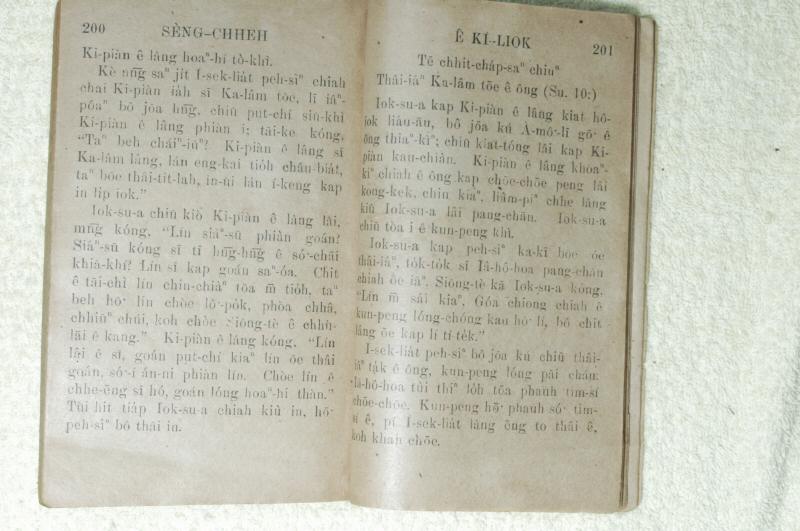 200 SÈNG-CHHEH
Ki-piàn ê lâng hoaⁿ-hí tò-khì.
Kè nn̄g saⁿ ji̍t I-sek-lia̍t peh-sìⁿ chiah
chai Ki-piàn iah sī Ka-lâm tōe, lī iâⁿ-
pôaⁿ bô jōa hn̄g, chiū put-chí siū-khì
Ki-piàn ê lâng phiàn i; tāi-ke kóng,
“Taⁿ beh cháiⁿ-iūⁿ? Ki-piàn ê lâng sī
Ka-lâm lâng, lán eng-kai tio̍h châu-bia̍t,
taⁿ bōe thâi-tit-lah, in-ūi lán í-keng kap
in li̍p iok.”
Iok-su-a chiū kiò Ki-piàn ê lâng lâi,
mn̄g kóng, “Lín siáⁿ-sū phiàn goán?
Siáⁿ-sū kóng sī tī hn̄g-hn̄g ê só͘-chāi
khiā-khí? Lín sī kap goán saⁿ-óa. Chit
ê tāi-chì lín chin-chiàⁿ tōa m̄ tio̍h, taⁿ
beh hō͘ lín chòe lô͘-po̍k, phòa chhâ,
chhiūⁿ chúi, koh chòe Siōng-tè ê chhù-
lāi ê kang.” Ki-piàn ê lâng kóng, “Lín
lâi ê sî, goán put-chí kiaⁿ lín ōe thâi
goán, só͘-í án-ni phiàn lín. Chòe lín ê
chhe-ēng sī hó, goán lóng hoaⁿ-hí thàn.”
Tùi hit tia̍p Iok-su-a chiah kiù in, hō͘
peh-sìⁿ bô thâi in.
Ê KÌ--LIOK 201
Tē chhit-cha̍p-saⁿ chiuⁿ
Thâi-iâⁿ Ka-lâm tōe ê ông (Su. 10:)
Iok-su-a kap Ki-piàn ê lâng kiat hô-
iok liáu-āu, bô jōa kú A-mô͘-lī gō͘ ê
ông thiaⁿ-kìⁿ; chiū kiat-tóng lâi kap Ki-
piàn kau-chiàn. Ki-piàn ê lâng khòaⁿ-
kìⁿ chiah ê ông kap chōe-chōe peng lâi
kong-kek, chin kiaⁿ, liâm-piⁿ chhe lâng
kiû Iok-su-a lâi pang-chān. Iok-su-a
chiū tòa i ê kun-peng khì.
Iok-su-a kap peh-sìⁿ ka-kī bōe ōe
thâi-iâⁿ, to̍k-to̍k sī Iâ-hô-hoa pang-chān
chiah ōe iâⁿ. Siōng-tè kā Iok-su-a kóng,
“Lín m̄ sái kiaⁿ, Góa chiong chiah ê
kun-peng lóng-chóng kau hō͘ lí, bô chit
lâng ōe kap lí tí-te̍k.”
I-sek-lia̍t peh-sìⁿ bô jōa kú chiū thâi-
iâⁿ ta̍k ê ông, kun-peng lóng pāi cháu:
Iâ-hô-hoa tùi thiⁿ lo̍h tōa pha̍uh tim-sí
chōe-chōe. Kun-peng hō͘ pha̍uh só͘ tim-
sí ê, pí I-sek-lia̍t lâng ēng to thâi ê,
koh khah chōe.